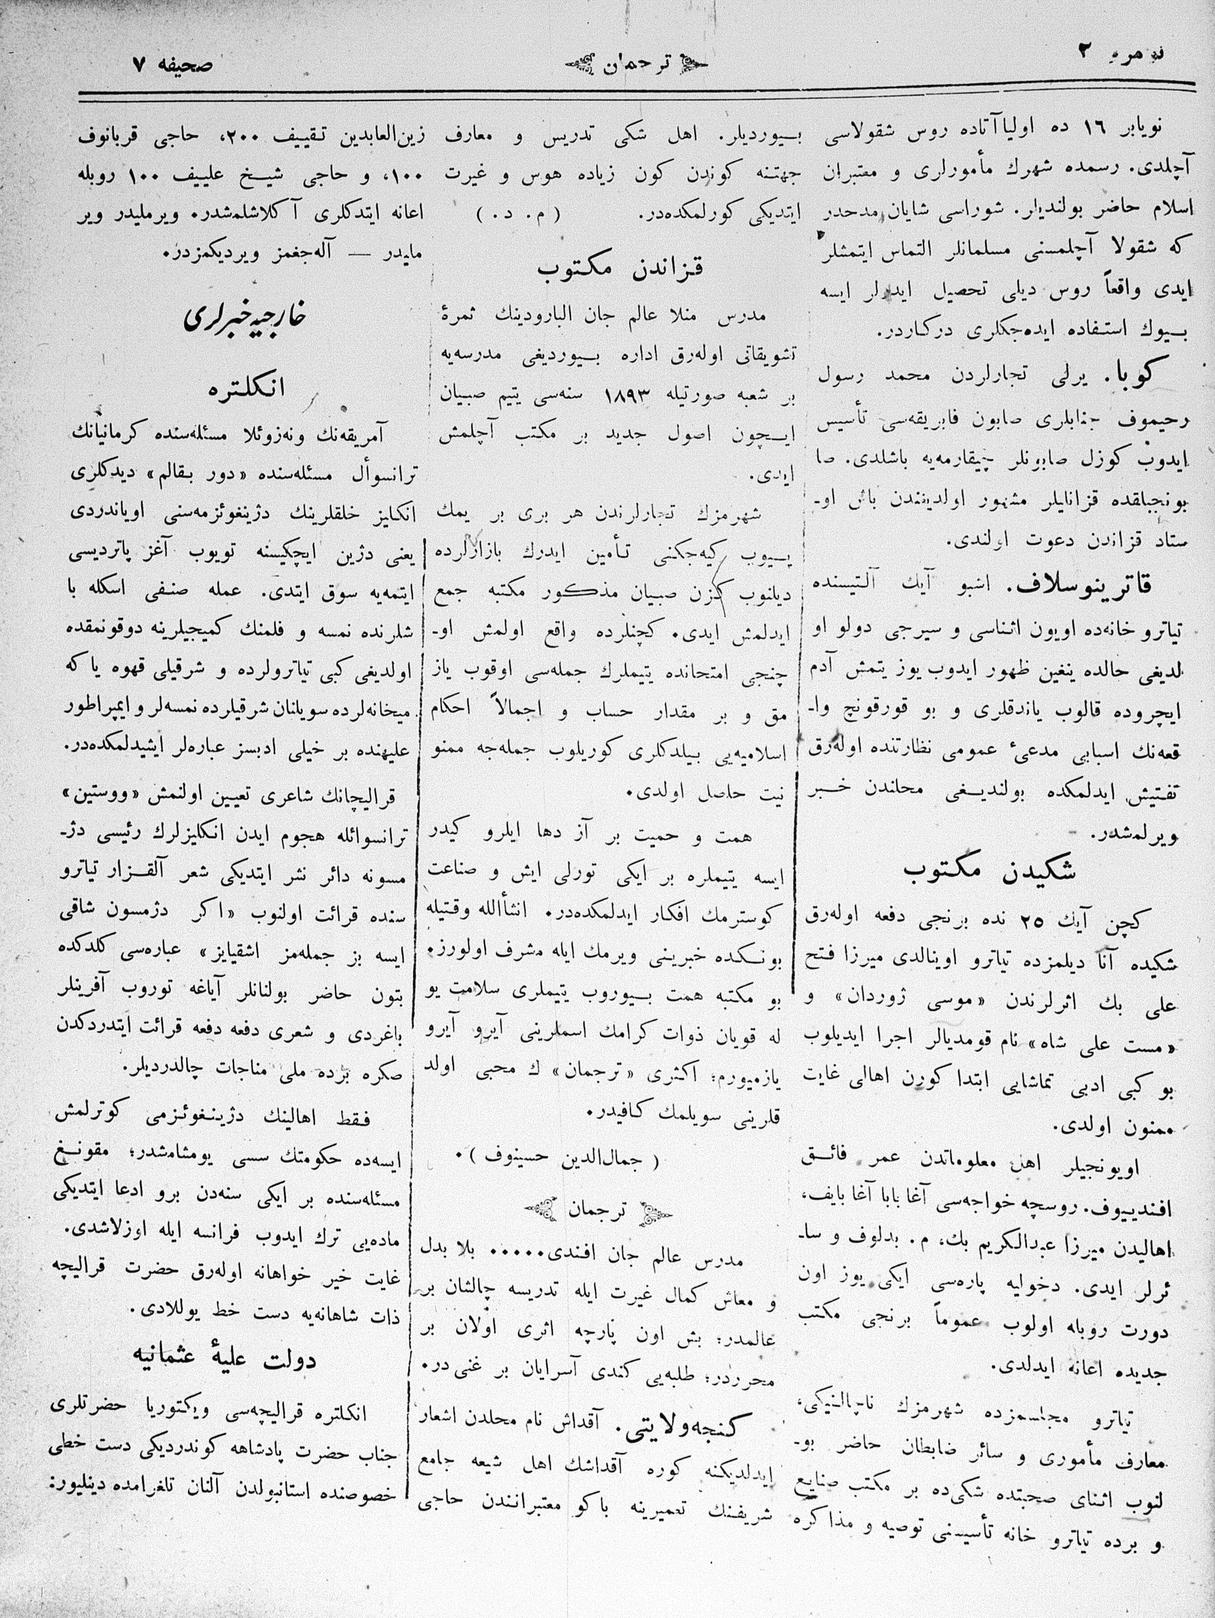 نومرو ٢
ترجمان
صحيفه ٧
نويابر ١٦ ده اولياآتاده روس شقولاسى
آچلدى. رسمده شهرك مأمورلرى و معتبران
اسلام حاضر بولنديلر. شوراسى شايان مدحدر
كه شقولا آچلمسنى مسلمانلر التماس ايتمشلر
ايدى واقعاً روس ديلى تحصيل ايدرلر ايسه
بيوك استفاده ايده‌جكلرى دركاردر.
كوبا. يرلى تجارلردن محمد رسول
رحيموف جنابلرى صابون فابريقه‌سى تأسيس
ايدوب كوزل صابونلر چيقارمه‌يه باشلدى. صا
بونجيلقده قزانليلر مشهور اولديغندن باش او-
ستاد قزاندن دعوت اولندى.
قاترينوسلاف. اشبو آيك آلتيسنده
تياترو خانه‌ده اويون اثناسى و سيرجى دولو او
لديغى حالده ينغين ظهور ايدوب يوز يتمش آدم
ايچروده قالوب ياندقلرى و بو قورقونچ وا-
قعه‌نك اسبابى مدعئ عمومى نظارتنده اوله‌رق
تفتيش ايدلمكده بولنديغى محلندن خبر
ويرلمشدر.
شكيدن مكتوب
كچن آيك ٢٥ نده برنجى دفعه اوله‌رق
شكيده آنا ديلمزده تياترو اوينالدى ميرزا فتح
على بك اثرلرندن «موسى ژوردان» و
«مست على شاه» نام قومديالر اجرا ايديلوب
بو كبى ادبى تماشايى ابتدا كورن اهالى غايت
ممنون اولدى.
اويونجيلر اهل معلوماتدن عمر فائق
افندييوف. روسچه خواجه‌سى آغا بابا آغا بايف،
اهاليدن ميرزا عبدالكريم بك، م. بدلوف و سا-
ئرلر ايدى. دخوليه پاره‌سى ايكى يوز اون
دورت روبله اولوب عموماً برنجى مكتب
جديده اعانه ايدلدى.
تياترو مجلسمزده شهرمزك ناچالنيكى،
معارف مأمورى و سائر ضابطان حاضر بو-
لنوب اثناى صحبتده شكى‌ده بر مكتب صنايع
و برده تياترو خانه تأسيسنى توصيه و مذاكره
بيورديلر. اهل شكى تدريس و معارف
جهتنه كوندن كون زياده هوس و غيرت
ايتديكى كورلمكده‌در. (م. د.)
قزاندن مكتوب
مدرس منلا عالم جان البارودينك ثمرهٔ
تشويقاتى اوله‌رق اداره بيورديغى مدرسه‌يه
بر شعبه صورتيله ١٨٩٣ سنه‌سى يتيم صبيان
ايچون اصول جديد بر مكتب آچلمش
ايدى.
شهرمزك تجارلرندن هر برى بر يمك
ييوب كيه‌جكنى تأمين ايدرك بازارلرده
ديلنوب كزن صبيان مذكور مكتبه جمع
ايدلمش ايدى. كچنلرده واقع اولمش او-
چنجى امتحانده يتيملرك جمله‌سى اوقوب ياز
مق و بر مقدار حساب و اجمالاً احكام
اسلاميه‌يى بيلدكلرى كوريلوب جمله‌جه ممنو
نيت حاصل اولدى.
همت و حميت بر آز دها ايلرو كيدر
ايسه يتيملره بر ايكى تورلى ايش و صناعت
كوسترمك افكار ايدلمكده‌در. انشأالله وقتيله
بونكده خبرينى ويرمك ايله مشرف اولورز.
بو مكتبه همت بيوروب يتيملرى سلامت يو
له قويان ذوات كرامك اسملرينى آيرو آيرو
يازميورم؛ اكثرى «ترجمان» ك محبى اولد
قلرينى سويلمك كافيدر.
(جمال‌الدين حسينوف).
ترجمان
مدرس عالم جان افندى..... بلا بدل
و معاش كمال غيرت ايله تدريسه چالشان بر
عالمدر؛ بش اون پارچه اثرى اولان بر
محرردر؛ طلبه‌يى كندى آسرايان بر غنى در.
كنجه ولايتى. آقداش نام محلدن اشعار
ايدلديكنه كوره آقداشك اهل شيعه جامع
شريفنك تعميرينه باكو معتبرانندن حاجى
زين‌العابدين تقييف ٢٠٠، حاجى قربانوف
١٠٠، و حاجى شيخ علييف ١٠٠ روبله
اعانه ايتدكلرى آكلاشلمشدر. ويرمليدر وير
مليدر — آله‌جغمز ويرديكمزدر.
خارجيه خبرلرى
انكلتره
آمريقه‌نك ونه‌زوئلا مسئله‌سنده كرمانيانك
ترانسوأل مسئله‌سنده «دور بقالم» ديدكلرى
انكليز خلقلرينك دژينغوئزمه‌سنى اوياندردى
يعنى دژين ايچكيسنه تويوب آغز پاترديسى
ايتمه‌يه سوق ايتدى. عمله صنفى اسكله با
شلرنده نمسه و فلمنك كميجيلرينه دوقونمقده
اولديغى كبى تياترولرده و شرقيلى قهوه ياكه
ميخانه‌لرده سويلنان شرقيلرده نمسه‌لر و ايمپراطور
عليهنده بر خيلى ادبسز عباره‌لر ايشيدلمكده‌در.
قراليچانك شاعرى تعيين اولنمش «ووستين»
ترانسوائله هجوم ايدن انكليزلرك رئيسى دژ-
مسونه دائر نشر ايتديكى شعر آلقزار تياترو
سنده قرائت اولنوب «اكر دژمسون شاقى
ايسه بز جمله‌مز اشقيايز» عباره‌سى كلدكده
بتون حاضر بولنانلر آياغه توروب آفرينلر
باغردى و شعرى دفعه دفعه قرائت ايتدردكدن
صكره برده ملى مناجات چالدرديلر.
فقط اهالينك دژينغوئزمى كوترلمش
ايسه‌ده حكومتك سسى يومشامشدر؛ مقونغ
مسئله‌سنده بر ايكى سنه‌دن برو ادعا ايتديكى
ماده‌يى ترك ايدوب فرانسه ايله اوزلاشدى.
غايت خير خواهانه اوله‌رق حضرت قراليچه
ذات شاهانه‌يه دست خط يوللادى.
دولت عليهٔ عثمانيه
انكلتره قراليچه‌سى ويكتوريا حضرتلرى
جناب حضرت پادشاهه كوندرديكى دست خطى
خصوصنده استانبولدن آلنان تلغرامده دينليور: